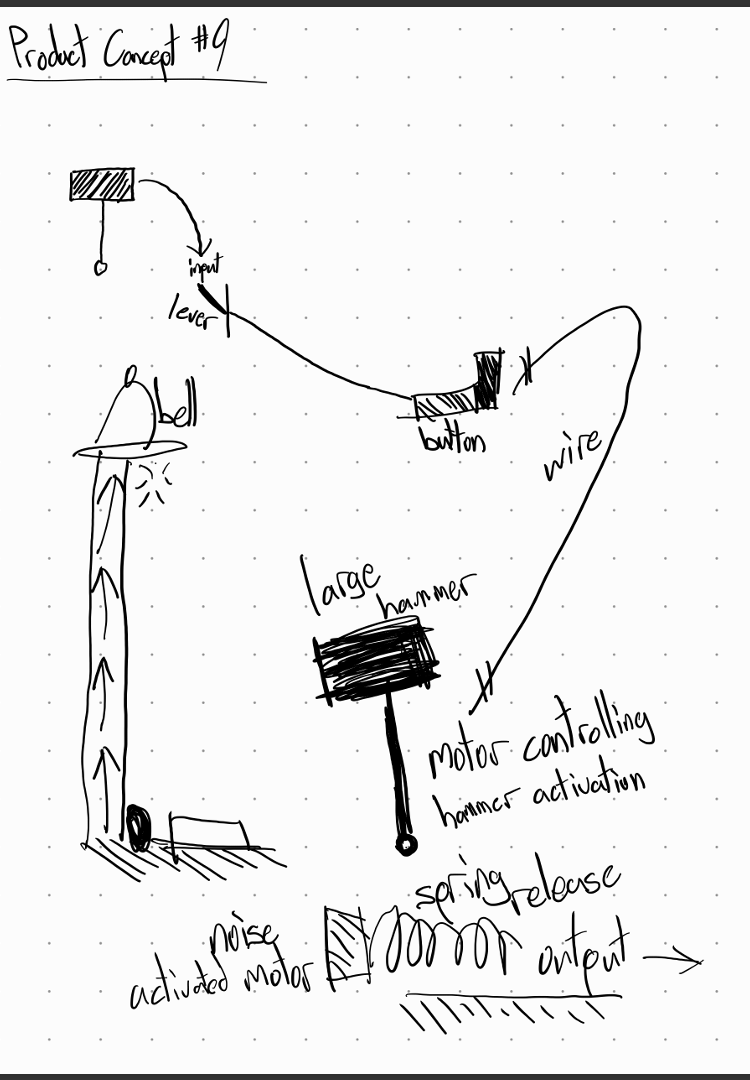 Product Concept #9
input
lever
bell
button
wire
large
hammer
motor controlling
hammer activation
spring release
noise
activated motor
output